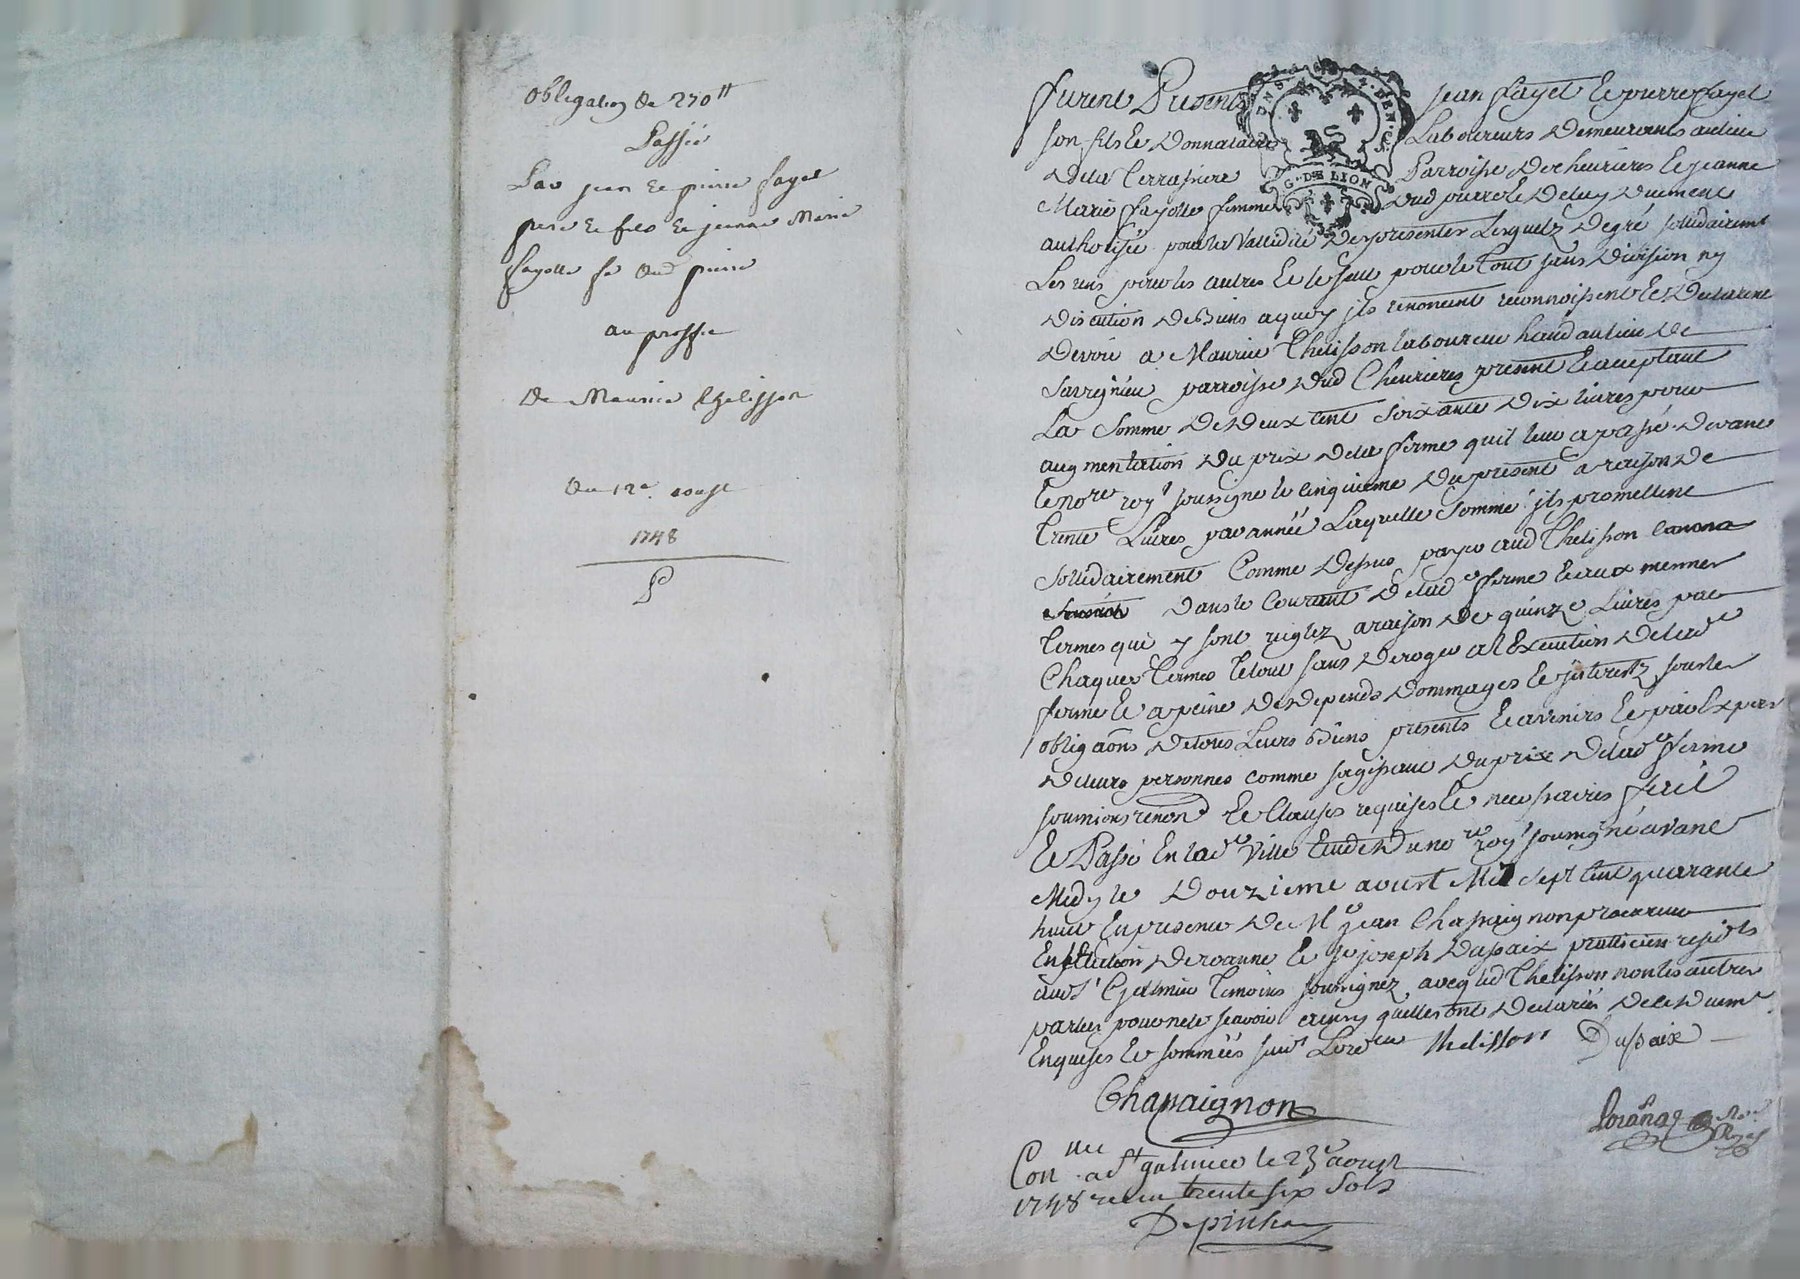 obligation de 270 tt
Passée
Par jean et pierre fayet
pere et fils et jeanne Marie
fayolle fe dud pierre
au proffit
de Maurice thelisson
du 12e. aoust
1748
P
furent Presents jean fayet et pierre fayet
son fils et Donnataire Laboureurs Demeurants au lieu
De la Terrassiere Parroisse De chevrieres et jeanne
Marie fayolle femme Dud pierre et De luy Duement
authorisée pour la Vallidité Des presentes Lesquelz De gré sollidairemt
Les uns pour les autres et le seul pour le tout sans Division ny
Discution De Biens a quoy ils renoncent reconnoissent et Declarent
Devoir a Maurice Thelisson laboureur hand au lieu De
Savignieu parroisse Dud Chevrieres present et acceptant
La Somme De Deux cent soixante Dix livres pour
augmentation Du prix De la ferme quil leur a passé Devant
le nore roy soussigné le cinquieme Du present a raison De
Trente Livres par année Laquelle somme ils promettent
sollidairement Comme Dessus payer aud Thelisson
Dans le Courant De lade ferme et aux mennes
Termes qui y sont reglez a raison De quinze Livres par
Chaques Termes le tout sans Deroger a l'Execution De lade
ferme et a peine Des Depends Dommages et jnterestz sous les
obligaôns De tous Leurs Biens presents et avenirs et par Exprès
De leurs personnes comme s'agissant Du prix De lade ferme
soumions renond et Clauses requises et necessaires fait
et Passé En lade Ville Etude Du nore roy soussigné avant
Midy le Douzieme aoust Mil Sept Cent quarante
huit En presence De Me jean Chassaignon procureur
En De roanne et sr joseph Dupaix pratticien residts
aud St Galmier Temoins soussignez avec led Thelisson non les autres
parties pour ne le sçavoir ainsy quelles ont Declaré De ce Duemt
Enquises et sommées suivt Lordce thelisson Dupaix
Chassaignon
Conllé a St galmier le 23e aoust
1748 recu trente six Sols